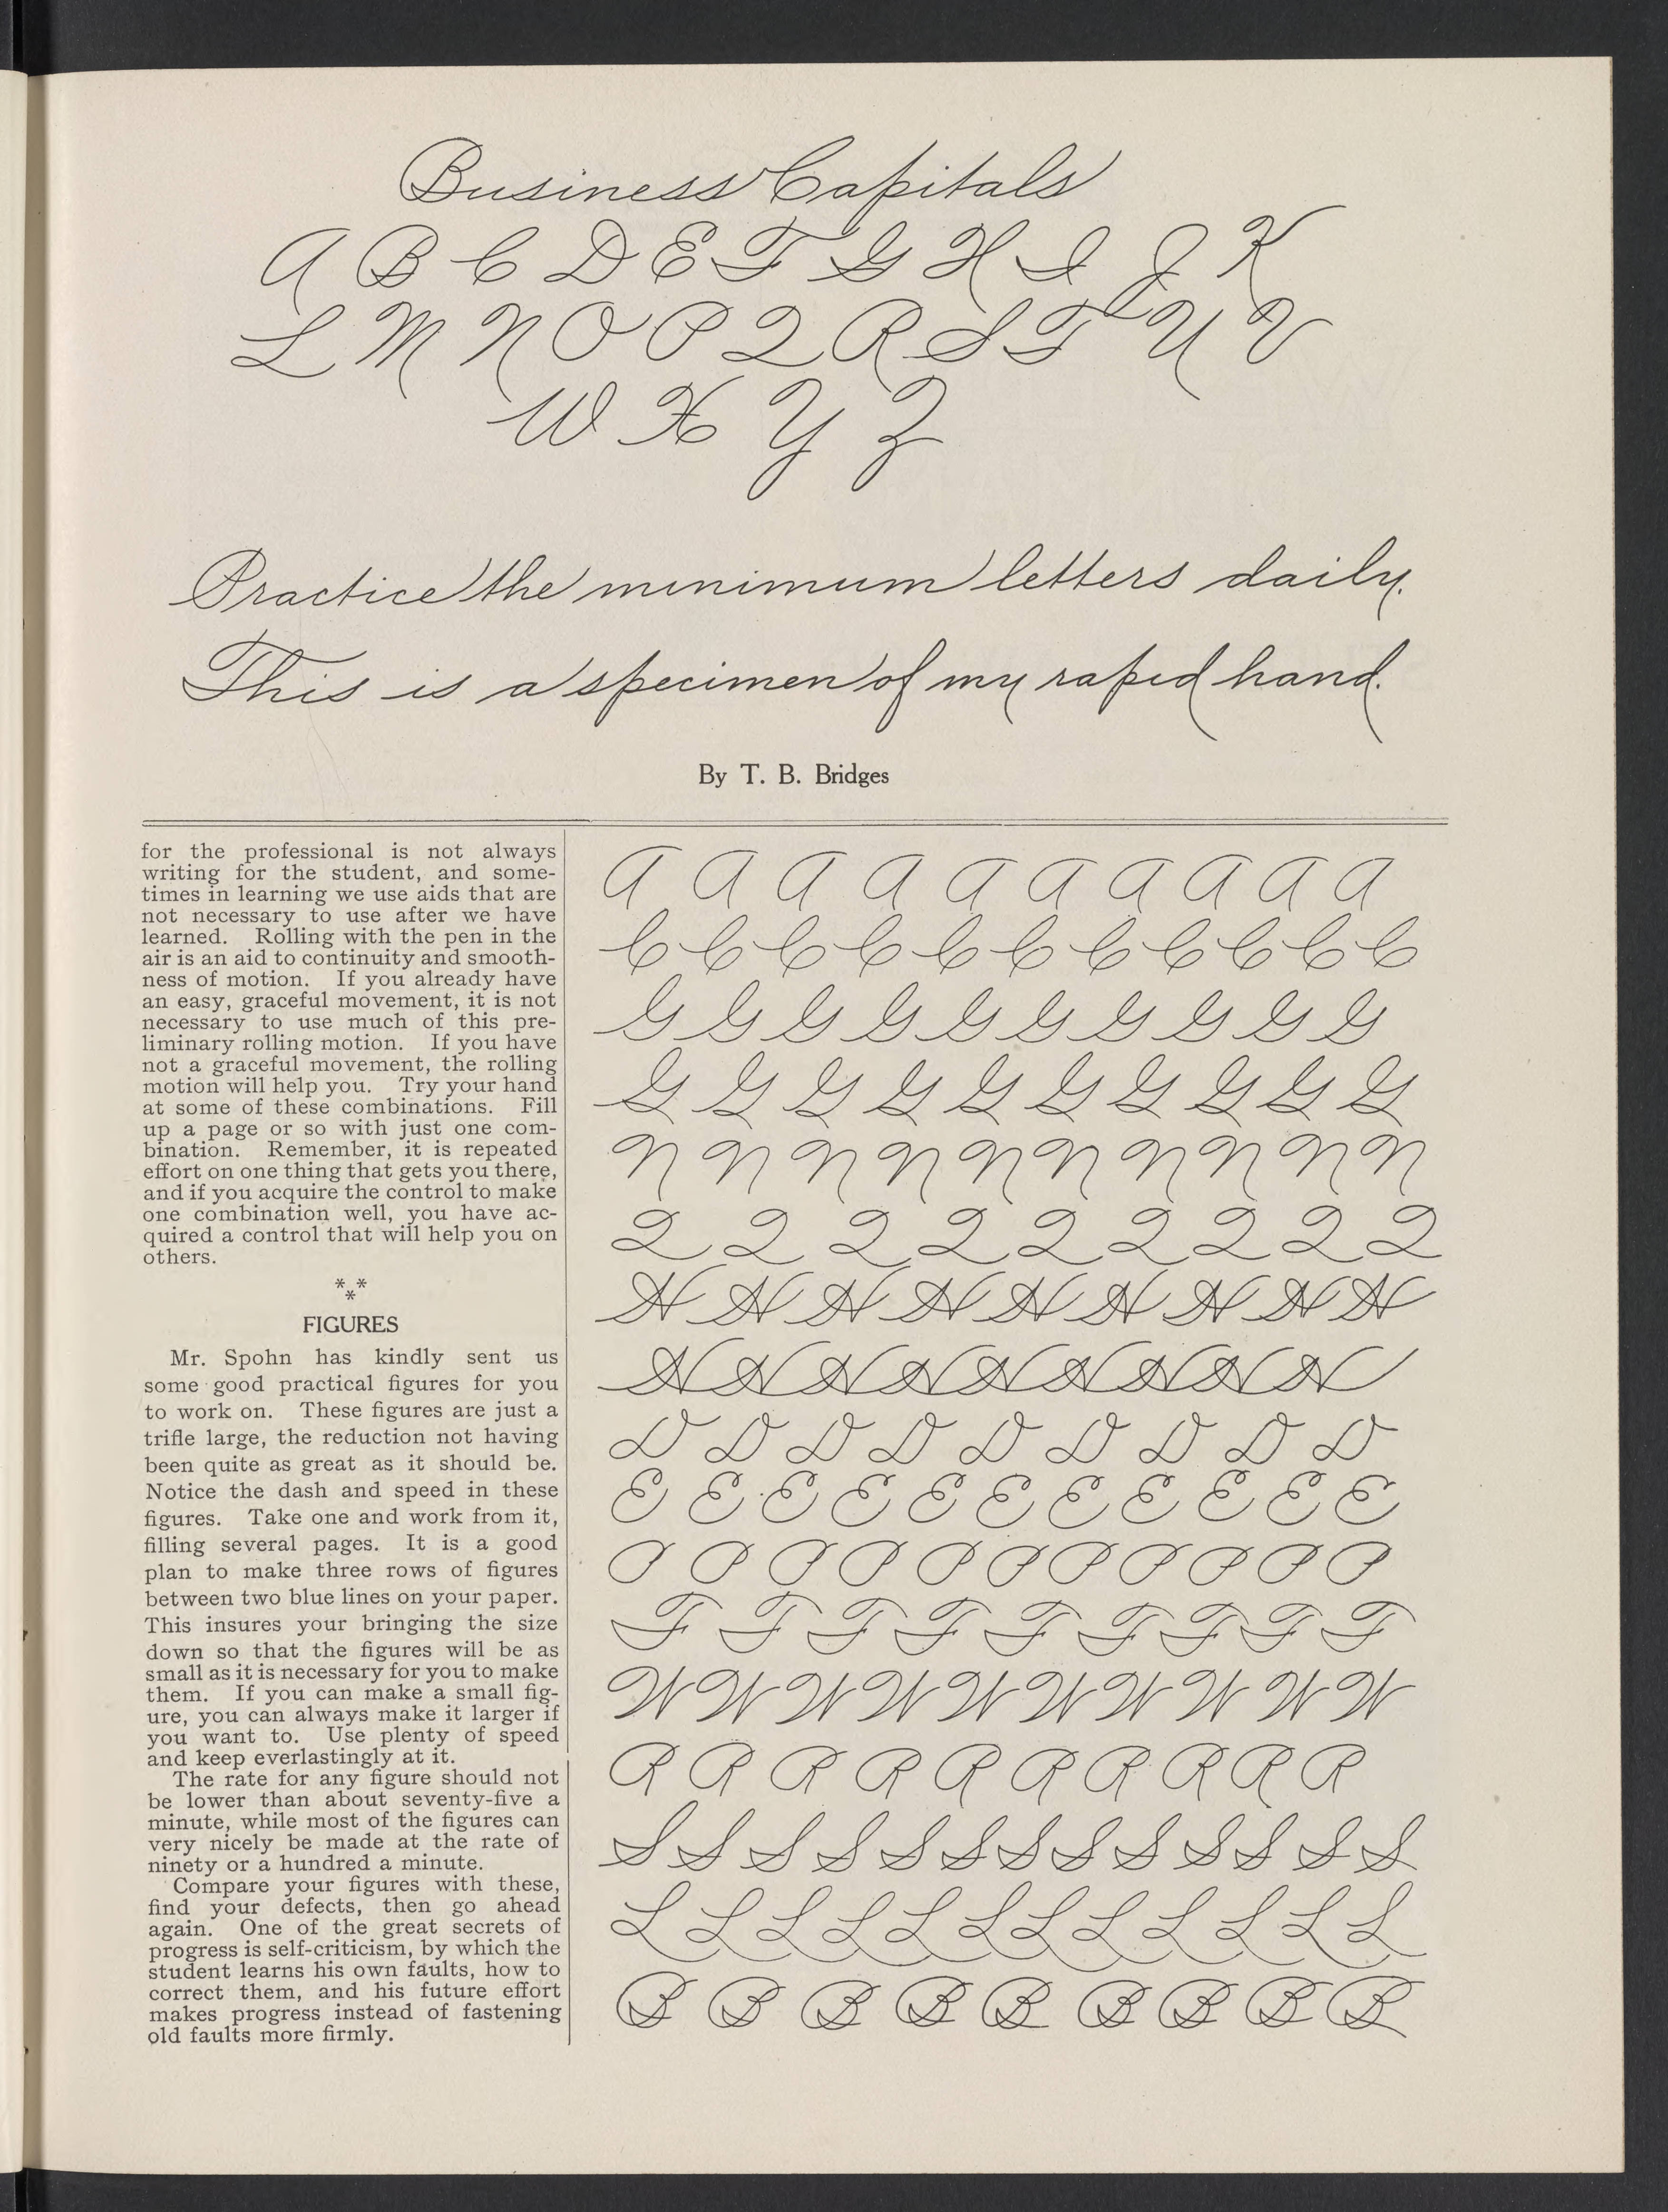 Business Capitals
A B C D E F G H I J K
L M N O P Q R S T U V
W X Y Z
Practice the minimum letters daily.
This is a specimen of my rapid hand.
By T. B. Bridges
for the professional is not always
writing for the student, and some-
times in learning we use aids that are
not necessary to use after we have
learned. Rolling with the pen in the
air is an aid to continuity and smooth-
ness of motion. If you already have
an easy, graceful movement, it is not
necessary to use much of this pre-
liminary rolling motion. If you have
not a graceful movement, the rolling
motion will help you. Try your hand
at some of these combinations. Fill
up a page or so with just one com-
bination. Remember, it is repeated
effort on one thing that gets you there,
and if you acquire the control to make
one combination well, you have ac-
quired a control that will help you on
others.
* * *
FIGURES
Mr. Spohn has kindly sent us
some good practical figures for you
to work on. These figures are just a
trifle large, the reduction not having
been quite as great as it should be.
Notice the dash and speed in these
figures. Take one and work from it,
filling several pages. It is a good
plan to make three rows of figures
between two blue lines on your paper.
This insures your bringing the size
down so that the figures will be as
small as it is necessary for you to make
them. If you can make a small fig-
ure, you can always make it larger if
you want to. Use plenty of speed
and keep everlastingly at it.
The rate for any figure should not
be lower than about seventy-five a
minute, while most of the figures can
very nicely be made at the rate of
ninety or a hundred a minute.
Compare your figures with these,
find your defects, then go ahead
again. One of the great secrets of
progress is self-criticism, by which the
student learns his own faults, how to
correct them, and his future effort
makes progress instead of fastening
old faults more firmly.
A A A A A A A A A A
C C C C C C C C C C C
G G G G G G G G G G
G G G G G G G G G G
N N N N N N N N N N
Q Q Q Q Q Q Q Q Q
H H H H H H H H H
H H H H H H H H H
D D D D D D D D D
E E E E E E E E E E E
P P P P P P P P P P P
F F F F F F F F F
W W W W W W W W W W
R R R R R R R R R R
S S S S S S S S S S S S S
L L L L L L L L L L L L
B B B B B B B B B